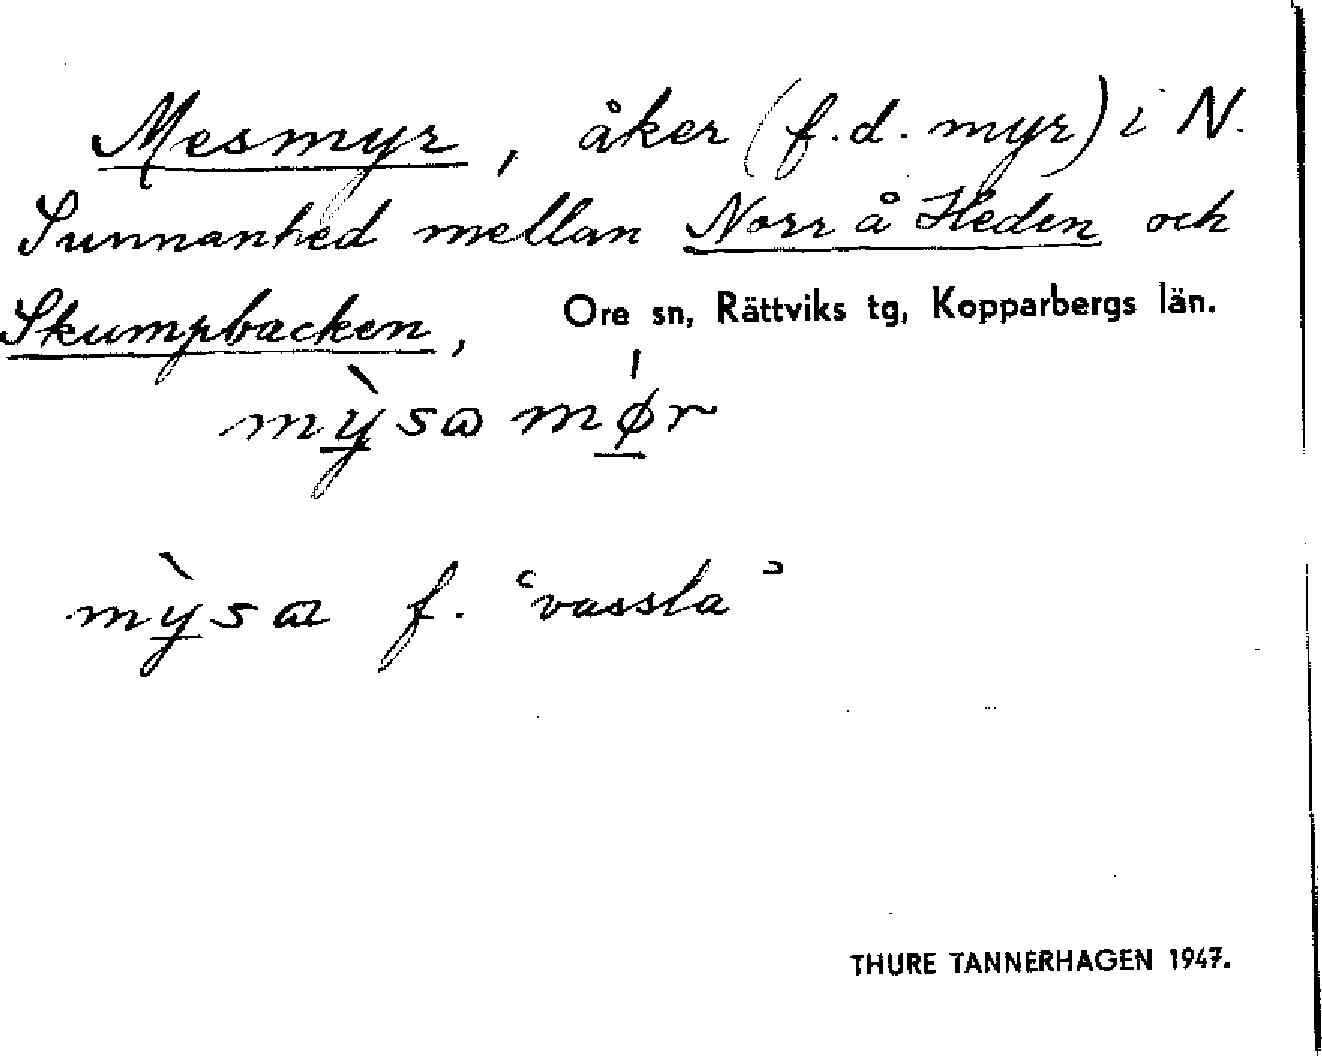 Mesmyr, åker (f.d. myr) i N.
Sunnanhed mellan Norr å Heden och
Skumpbacken, Ore sn, Rättviks tg, Kopparbergs län.
mỳsɷ mǿr
mỳsα f. ʻvasslaʼ
THURE TANNERHAGEN 1947.